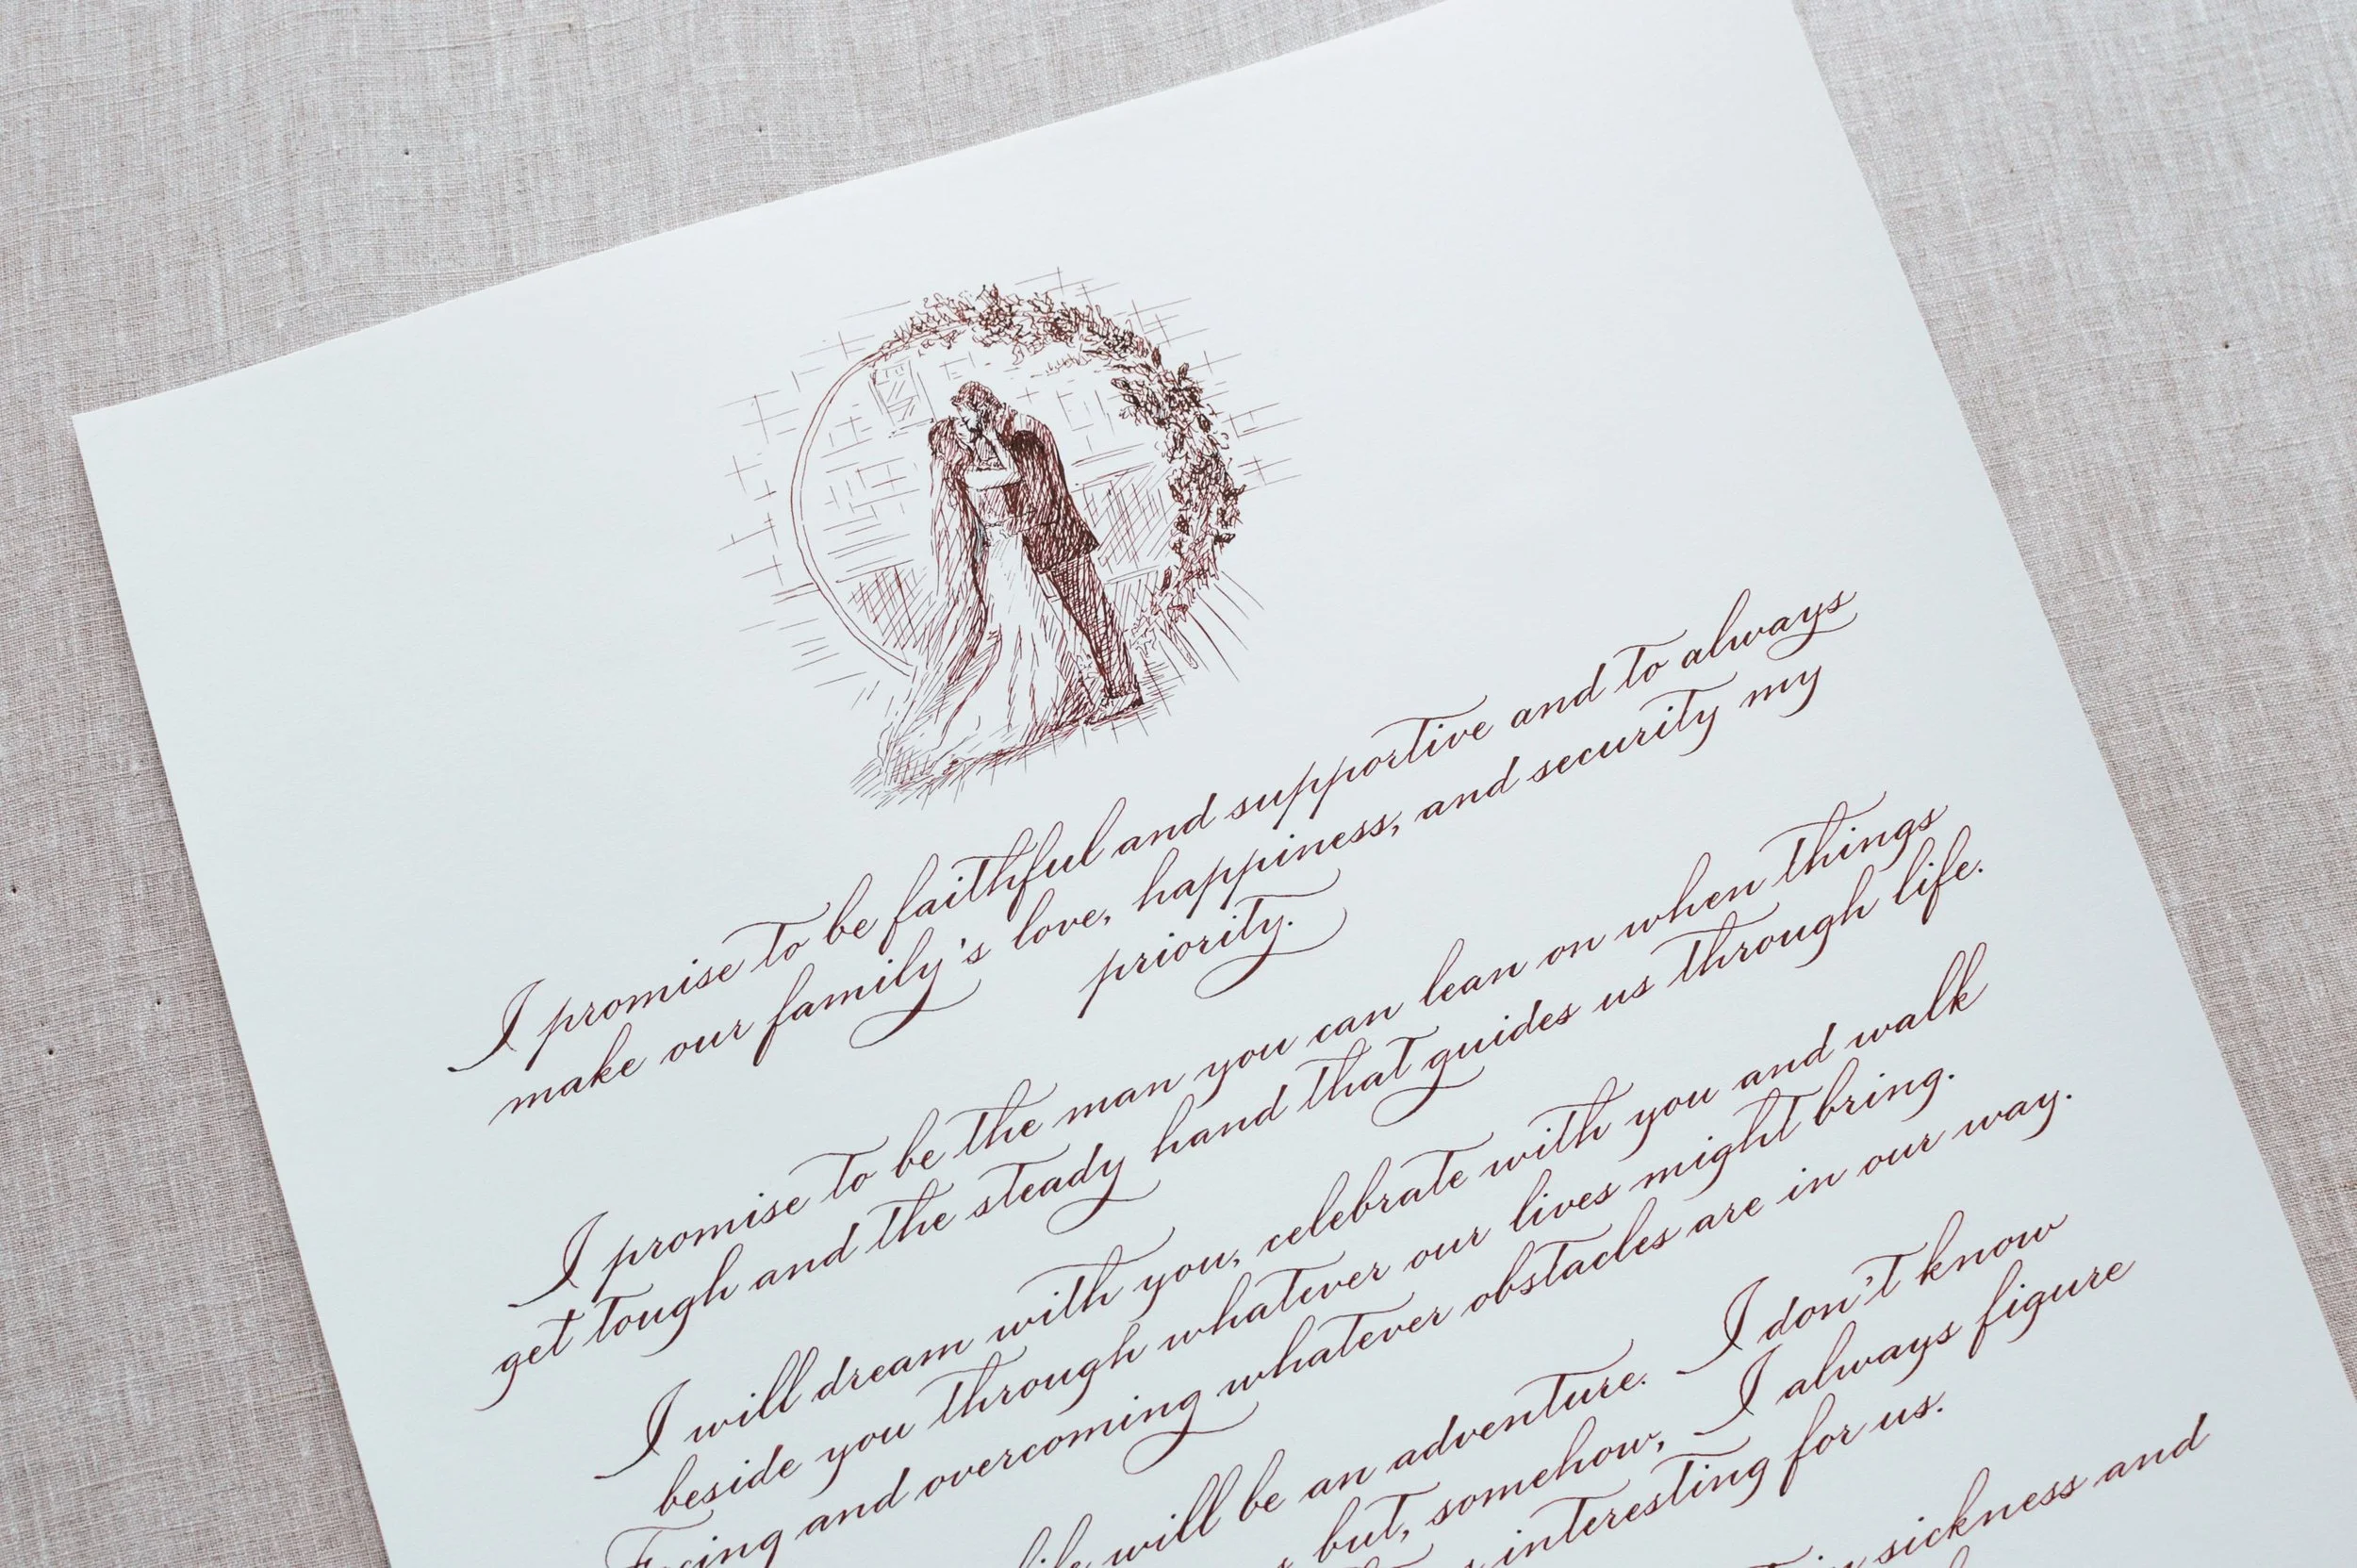 I promise to be faithful and supportive and to always
make our family's love, happiness, and security my
priority.
I promise to be the man you can lean on when things
get tough and the steady hand that guides us through life.
I will dream with you, celebrate with you and walk
beside you through whatever our lives might bring.
Facing and overcoming whatever obstacles are in our way.
life will be an adventure. I don't know
but, somehow, I always figure
interesting for us.
in sickness and